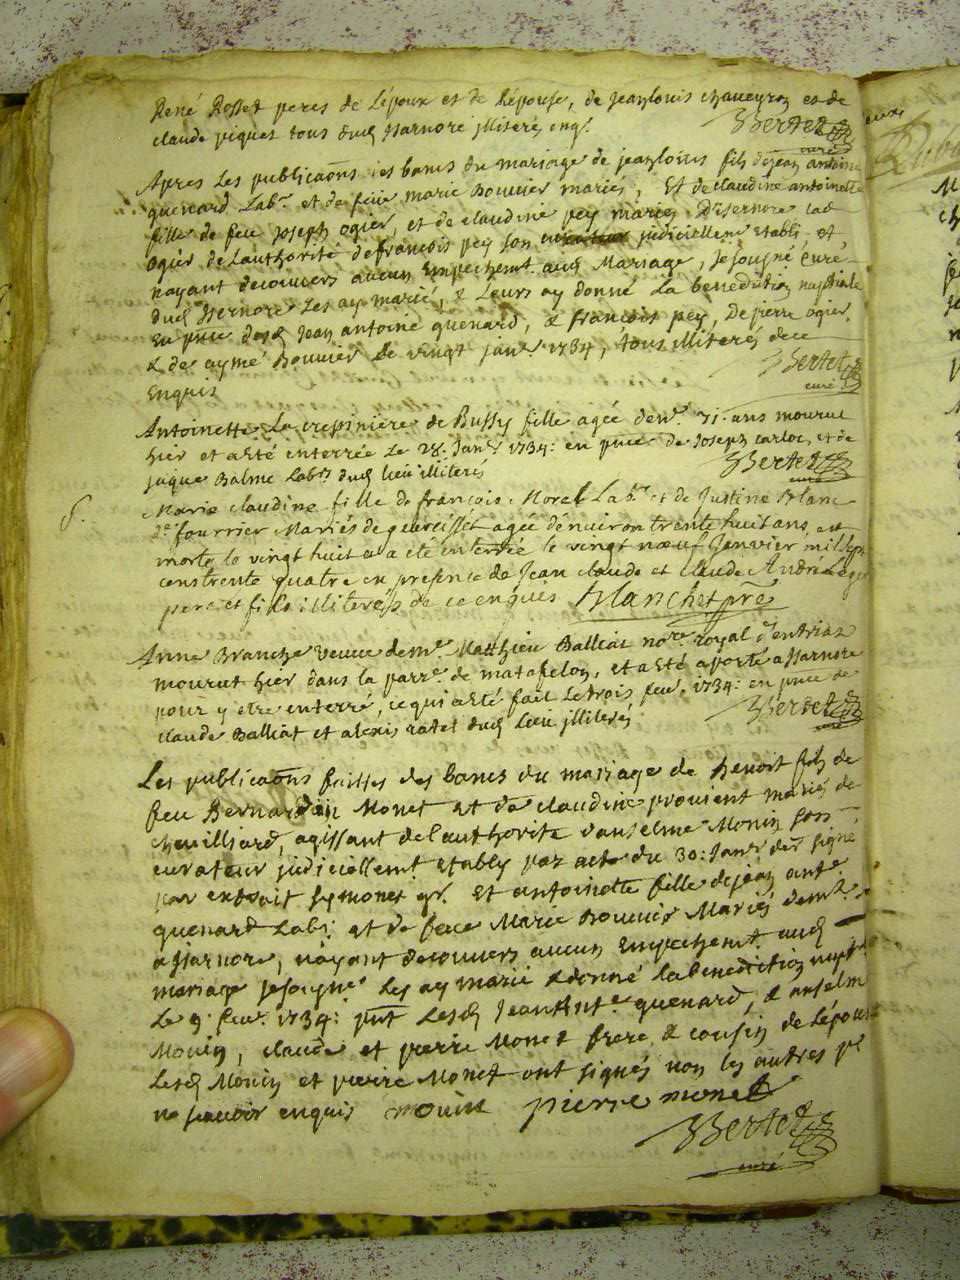 René Rosset peres de Lépoux et de Lépouse, de jeanlouis chaveyron et de
claude piquet tous dud jsarnore jlliterés enqs.
Bertet
curé
Apres Les publicaõns des bans du mariage de jeanlouis fils de jean antoine
quenard Labr. et de feüe marie Bouvier mariés, Et de claudine antoinette
fille de feu joseph ogier, et de claudine pey mariés Disernore lad
ogier de Lauthorité de francois pey son curateur judiciellemt etabli et
nayant decouvers aucun Empechemt aud Mariage, je sousigné Curé
dud Jsernore Les ay marié, & Leurs ay donné La benediction nuptiale
En pnce desd Jean antoine quenard, & francois pey, De pierre ogier,
& de aymé Bouvier Le vingt janr 1734, tous illiterés de ce
Enquis
Bertet
curé
Antoinette La crepiniere de Bussy fille agée denvn. 71. ans mourut
hier et a Eté enterrée Le 28. Janr 1734: en pnce de Joseph carloc, et de
jaque Balme Labrs dud lieu illiterés
Bertet
curé
6.
Marie claudine fille de françois Morel Labr. et de Justine Blanc
dt fourrier Mariés de agée dénviron trente huit ans est
morte le vingt huit et a été enterrée le vingt nœuf Janvier mil sept
cens trente quatre en presence de Jean claude et claude André
pere et fils illiterés de ce enquis Blanchet pre
Anne Branche veuve de mr. Matthieu Balliat nore. royal dentriaz
mourut hier dans la parre. de matafelon, et a Eté aporté a Jsarnore
pour y etre enterré, ce qui a Eté fait Le trois fevr. 1734: en pnce de
claude Balliat et aléxis ratel dud Lieu jlliterés
Bertet
curé
Les publicaõns faittes des bans du mariage de Benoit fils de
feu Bernardin Monet et de claudine provient mariés de
chevilliard, agissant de Lauthorité d'anselme Monin son
curateur judiciellemt etably par acte du 30: Janr derr signé
par extrait Et antoinette fille de jean ante.
quenard Labr: et de feüe Marie Bouvier Mariés demt.
a Jsarnore, nayant decouvers aucun Empechemt. aud
mariage je sousigné Les ay marié & donné La benediction nuptle
Le 9 fevr. 1734: pnt Lesd Jean Ante quenard, & anselme
Monin, claude et pierre Monet frere & cousin de Lépoux
Lesd Monin et pierre Monet ont signés non les autres pr
ne sçavoir enquis monin pierre monet
Bertet
curé